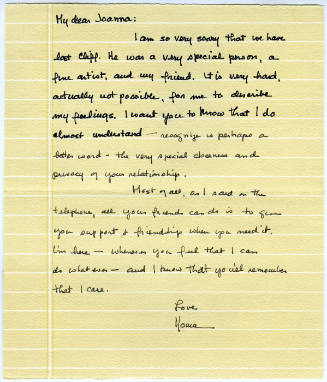 My dear Joanna:
I am so very sorry that we have
lost Cliff. He was a very special person, a
fine artist, and my friend. It is very hard,
actually not possible, for me to describe
my feelings. I want you to know that I do
almost understand — recognize is perhaps a
better word — the very special closeness and
privacy of your relationship.
Most of all, as I said on the
telephone, all your friends can do is to give
you support & friendship when you need it.
I'm here — whenever you feel that I can
do whatever — and I know that you'll remember
that I care.
Love